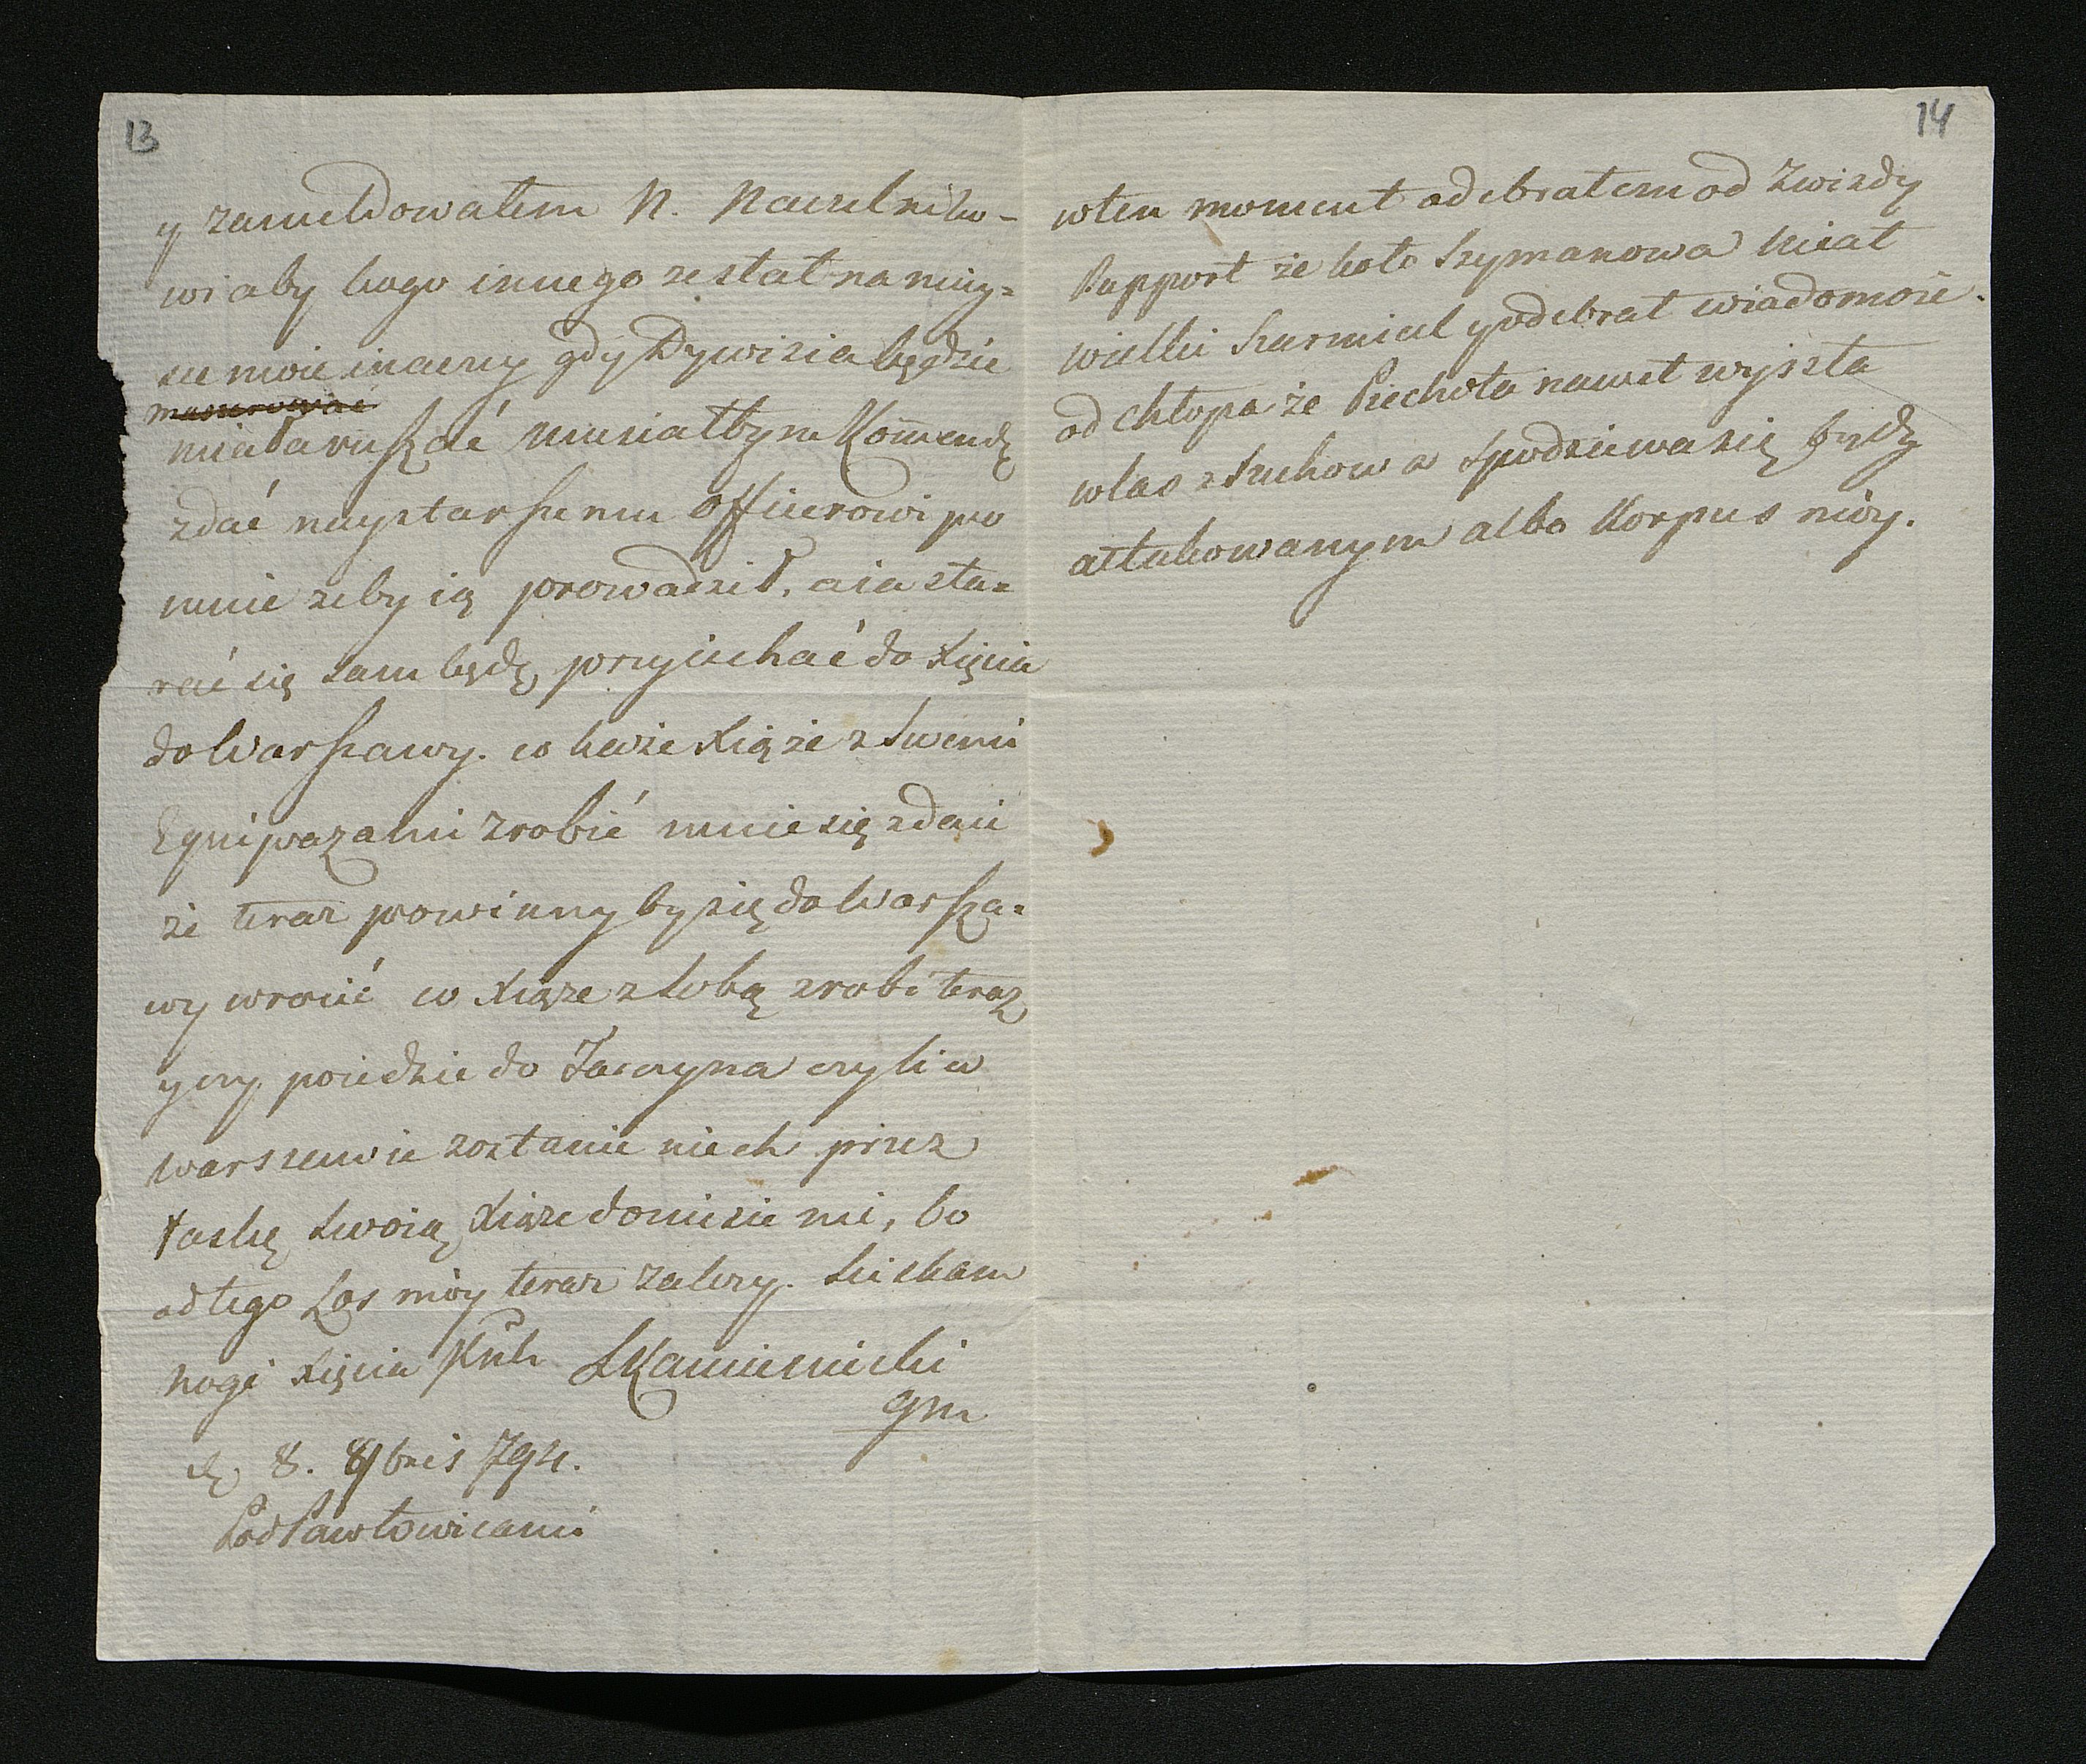 13
y zameldowałem N. Naczelniko-
wi aby kogo innego zesłał na miey=
sce moie inaczey gdy Dywizia będzie
maszerować
miała ruszać musiałbym Kommendę
zdać naystarszemu Officerowi po
mnie żeby ią prowadził, a ia sta=
rać się sam będę przyiechać do Xięcia
do Warszawy. co każe Xiąże z Swemi
Equipazami zrobić mnie się zdaie
że teraz powinny by się do Warsza=
wy wrócić co Xiąże z Sobą zrobi teraz
y czy poiedzie do Jaczyna czyli w
Warszawie zostanie niech przez
łaskę Swoią Xiąże doniesie mi, bo
od tego Los móy teraz zależy. Sciskam
nogi Xięcia SKamienicki
gm
d. 8. 8bris 794.
Pod Pawłowicami
14
w ten moment odebrałem od Zwiazdy
Rapport że koło Szymanowa miał
wielki Szarmicel y odebrał wiadomość
od chłopa że Piechota nawet wyszła
w las z Suchowa Spodziewa się bydź
attakowanym albo Korpus móy.